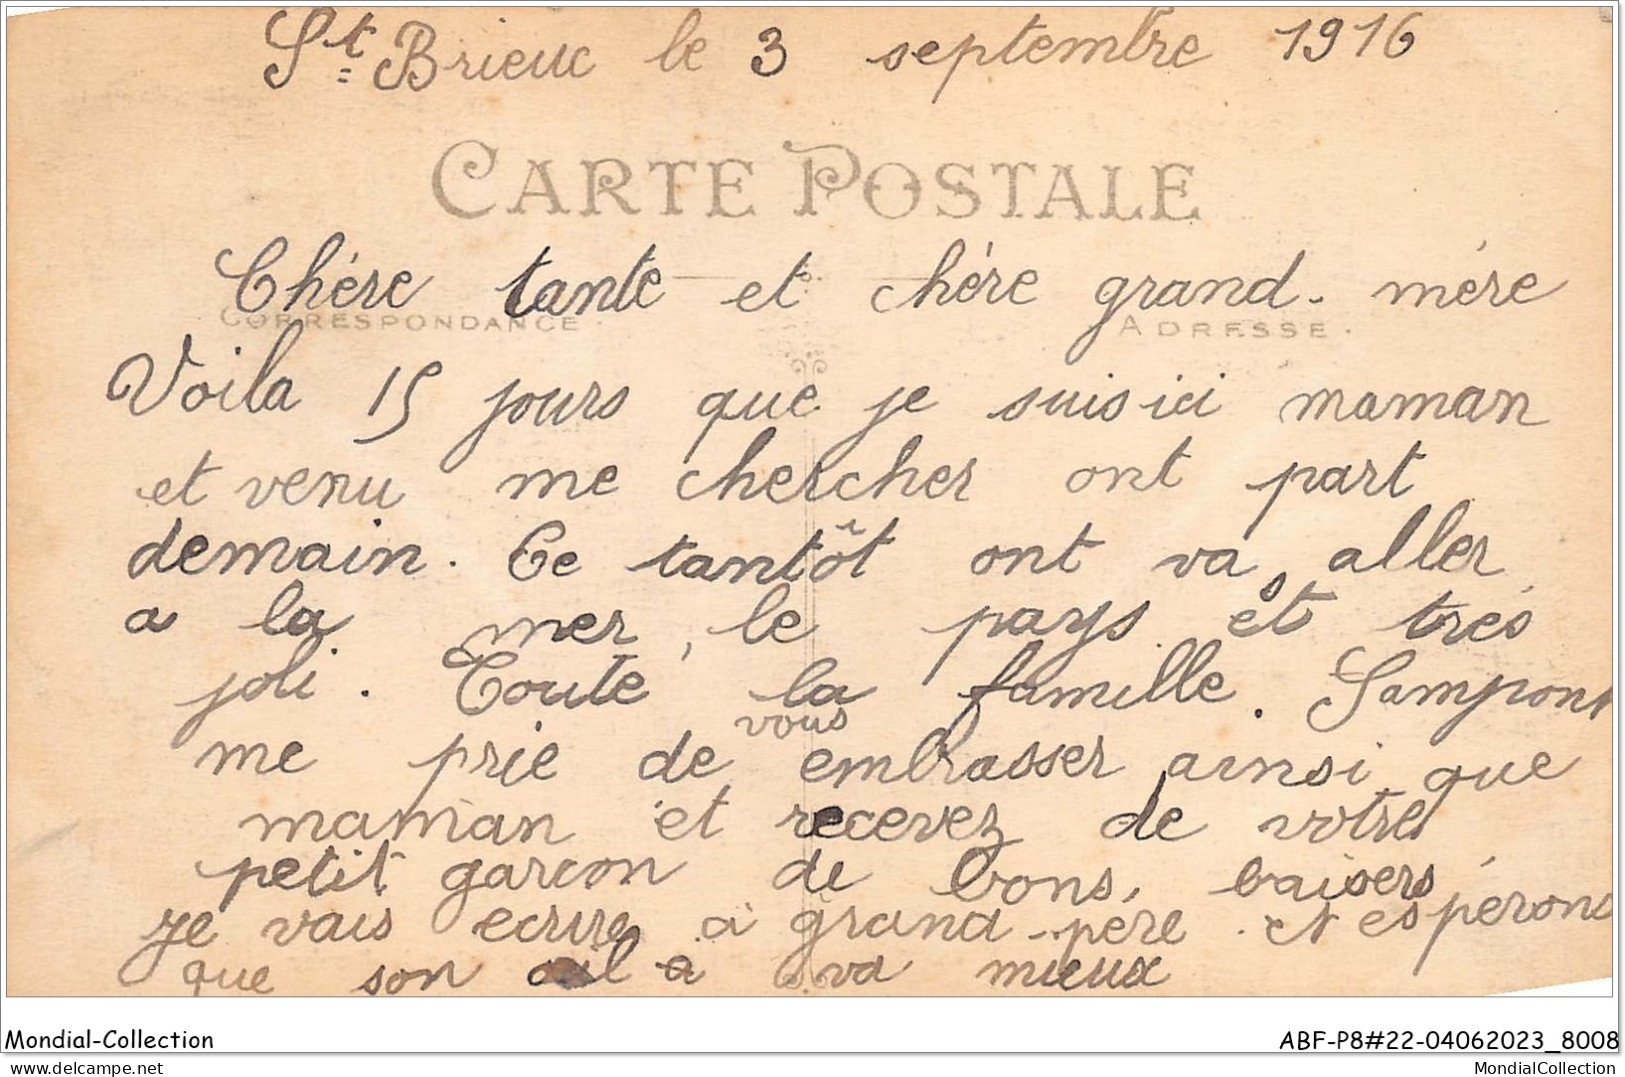 St Brieuc le 3 septembre 1916
CARTE POSTALE
Chére tante et chére grand-mére
CORRESPONDANCE
ADRESSE
Voila 15 jours que je suis ici maman
et venu me chercher ont part
demain. Ce tantôt ont va aller
a la mer, le pays et trés
joli. Toute la famille Sampont
me prie de vous embrasser ainsi que
maman et recevez de votre
petit garcon de bons baisers
je vais ecrire à grand-pére et espérons
que son œil a va mieux
Mondial-Collection
ABF-P8#22-04062023_8008
delcampe.net
MondialCollection